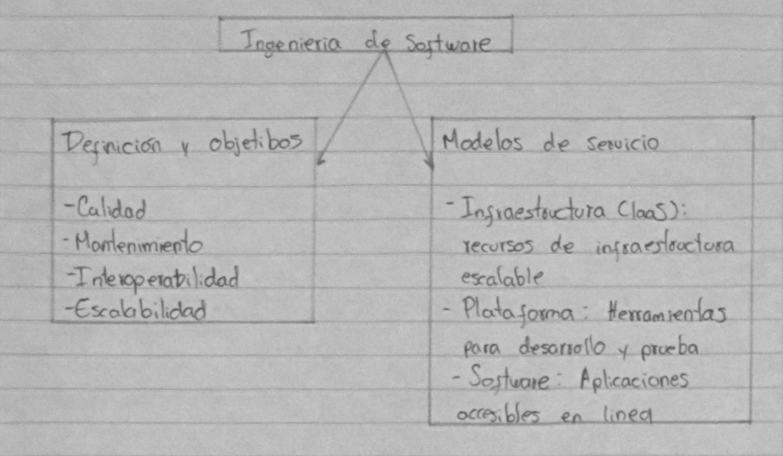 Ingenieria de Software
Definición y objetibos
-Calidad
-Mantenimiento
-Interoperabilidad
-Escalabilidad
Modelos de servicio
-Infraestructura (IaaS):
recursos de infraestructura
escalable
- Plataforma: Herramientas
para desarrollo y prueba
- Software: Aplicaciones
accesibles en linea